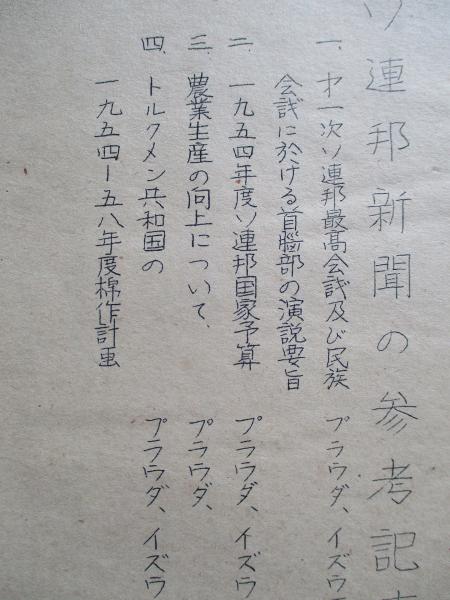 ソ連邦新聞の参考記
一、才一次ソ連邦最高会议及び民族 プラウダ、イズウ
会议に於ける首脳部の演説要旨
二、一九五四年度ソ連邦国家予算 プラウダ、イズウ
三、農業生産の向上について、 プラウダ、
四、トルクメン共和国の プラウダ、イズウ
一九五四ー五八年度棉作計画